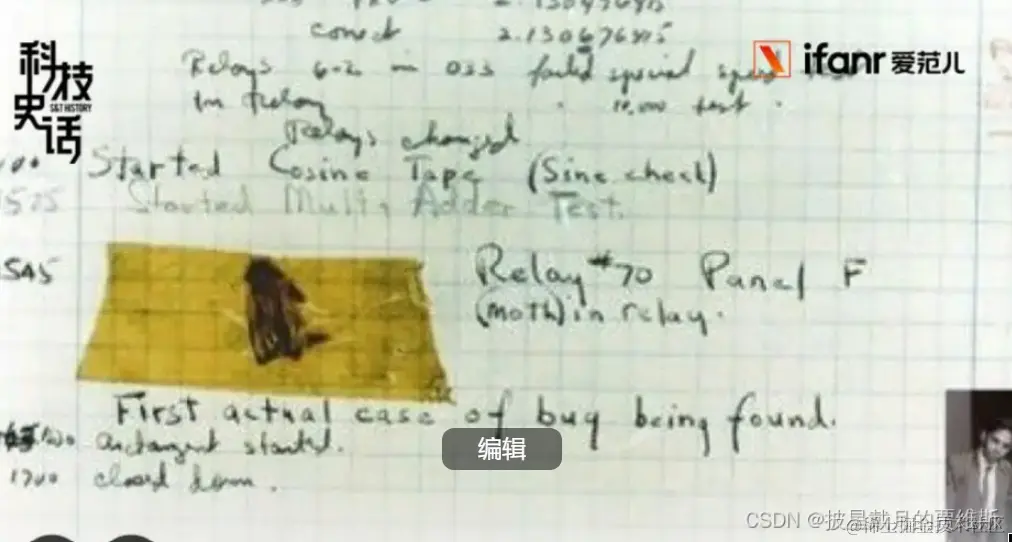 2.130476415
科技史话
S&T HISTORY
ifanr 爱范儿
2.130676415
Relays 6-2 in 033 failed special speed
In Relay 10,000 test.
Relays changed
Started Cosine Tape (Sine check)
1525 Started Multi Adder Test.
1545 Relay #70 Panel F
(moth) in relay.
First actual case of bug being found.
编辑
started.
1700 closed down.
CSDN @披星戴月的贾维斯
@稀土掘金技术社区